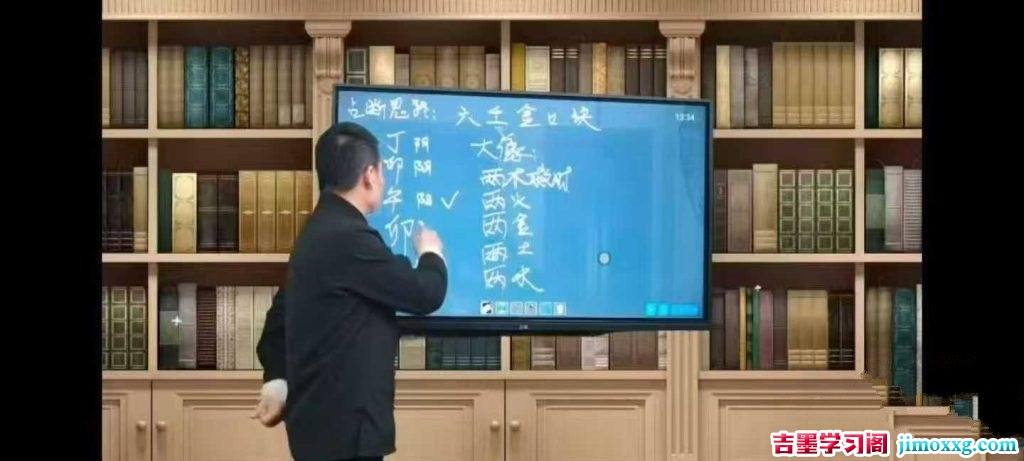 占断思路：六壬金口诀
13:34
丁 阴
卯 阴
午 阳 ✓
卯
大象：
两木
两火
两金
两土
两水
吉墨学习阁 jimoxxg.com